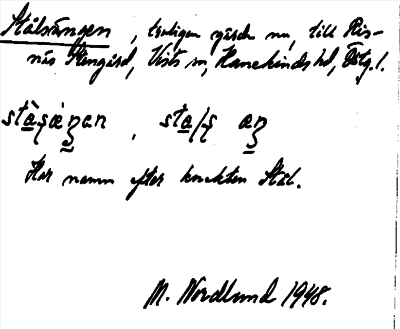 Stålsängen, troligen gärde nu, till Ris-
näs Stengård, Vists sn, Hanekinds hd, Östg.l.
Har namn efter knekten Stål.
M. Nordlund 1948.